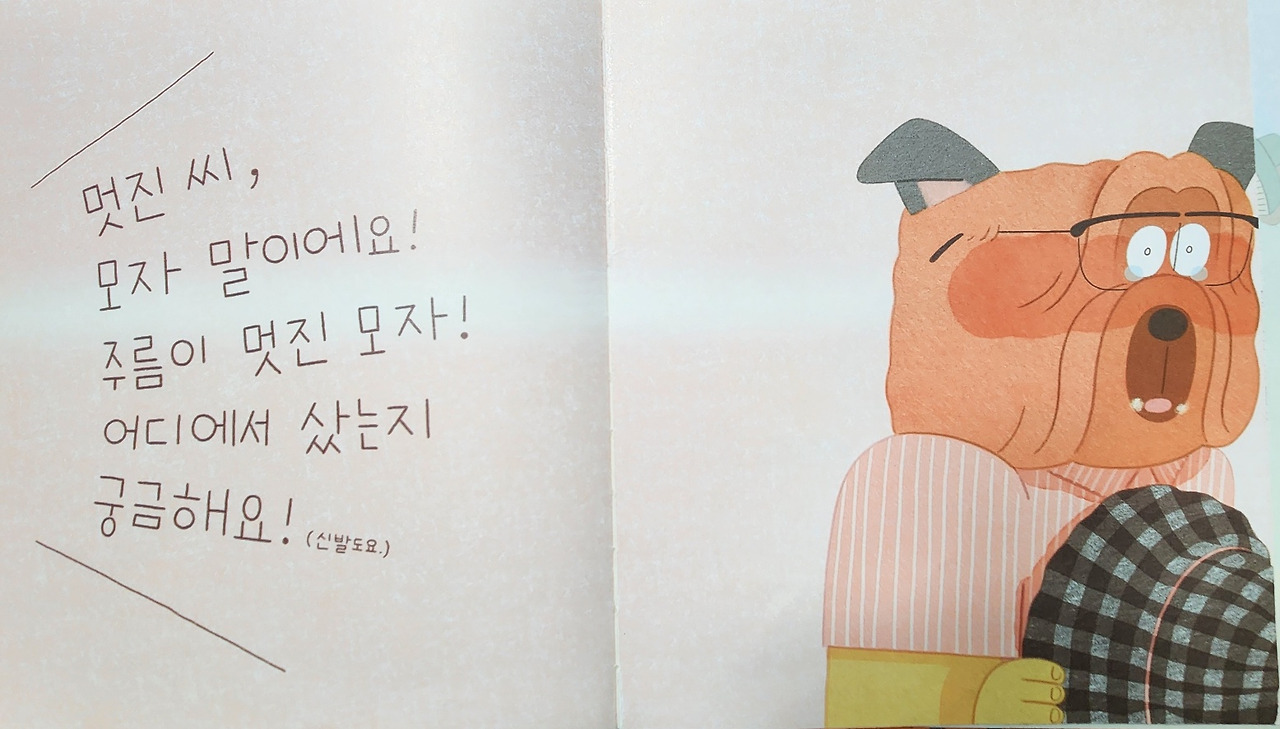 멋진 씨,
모자 말이에요!
주름이 멋진 모자!
어디에서 샀는지
궁금해요! (신발도요.)